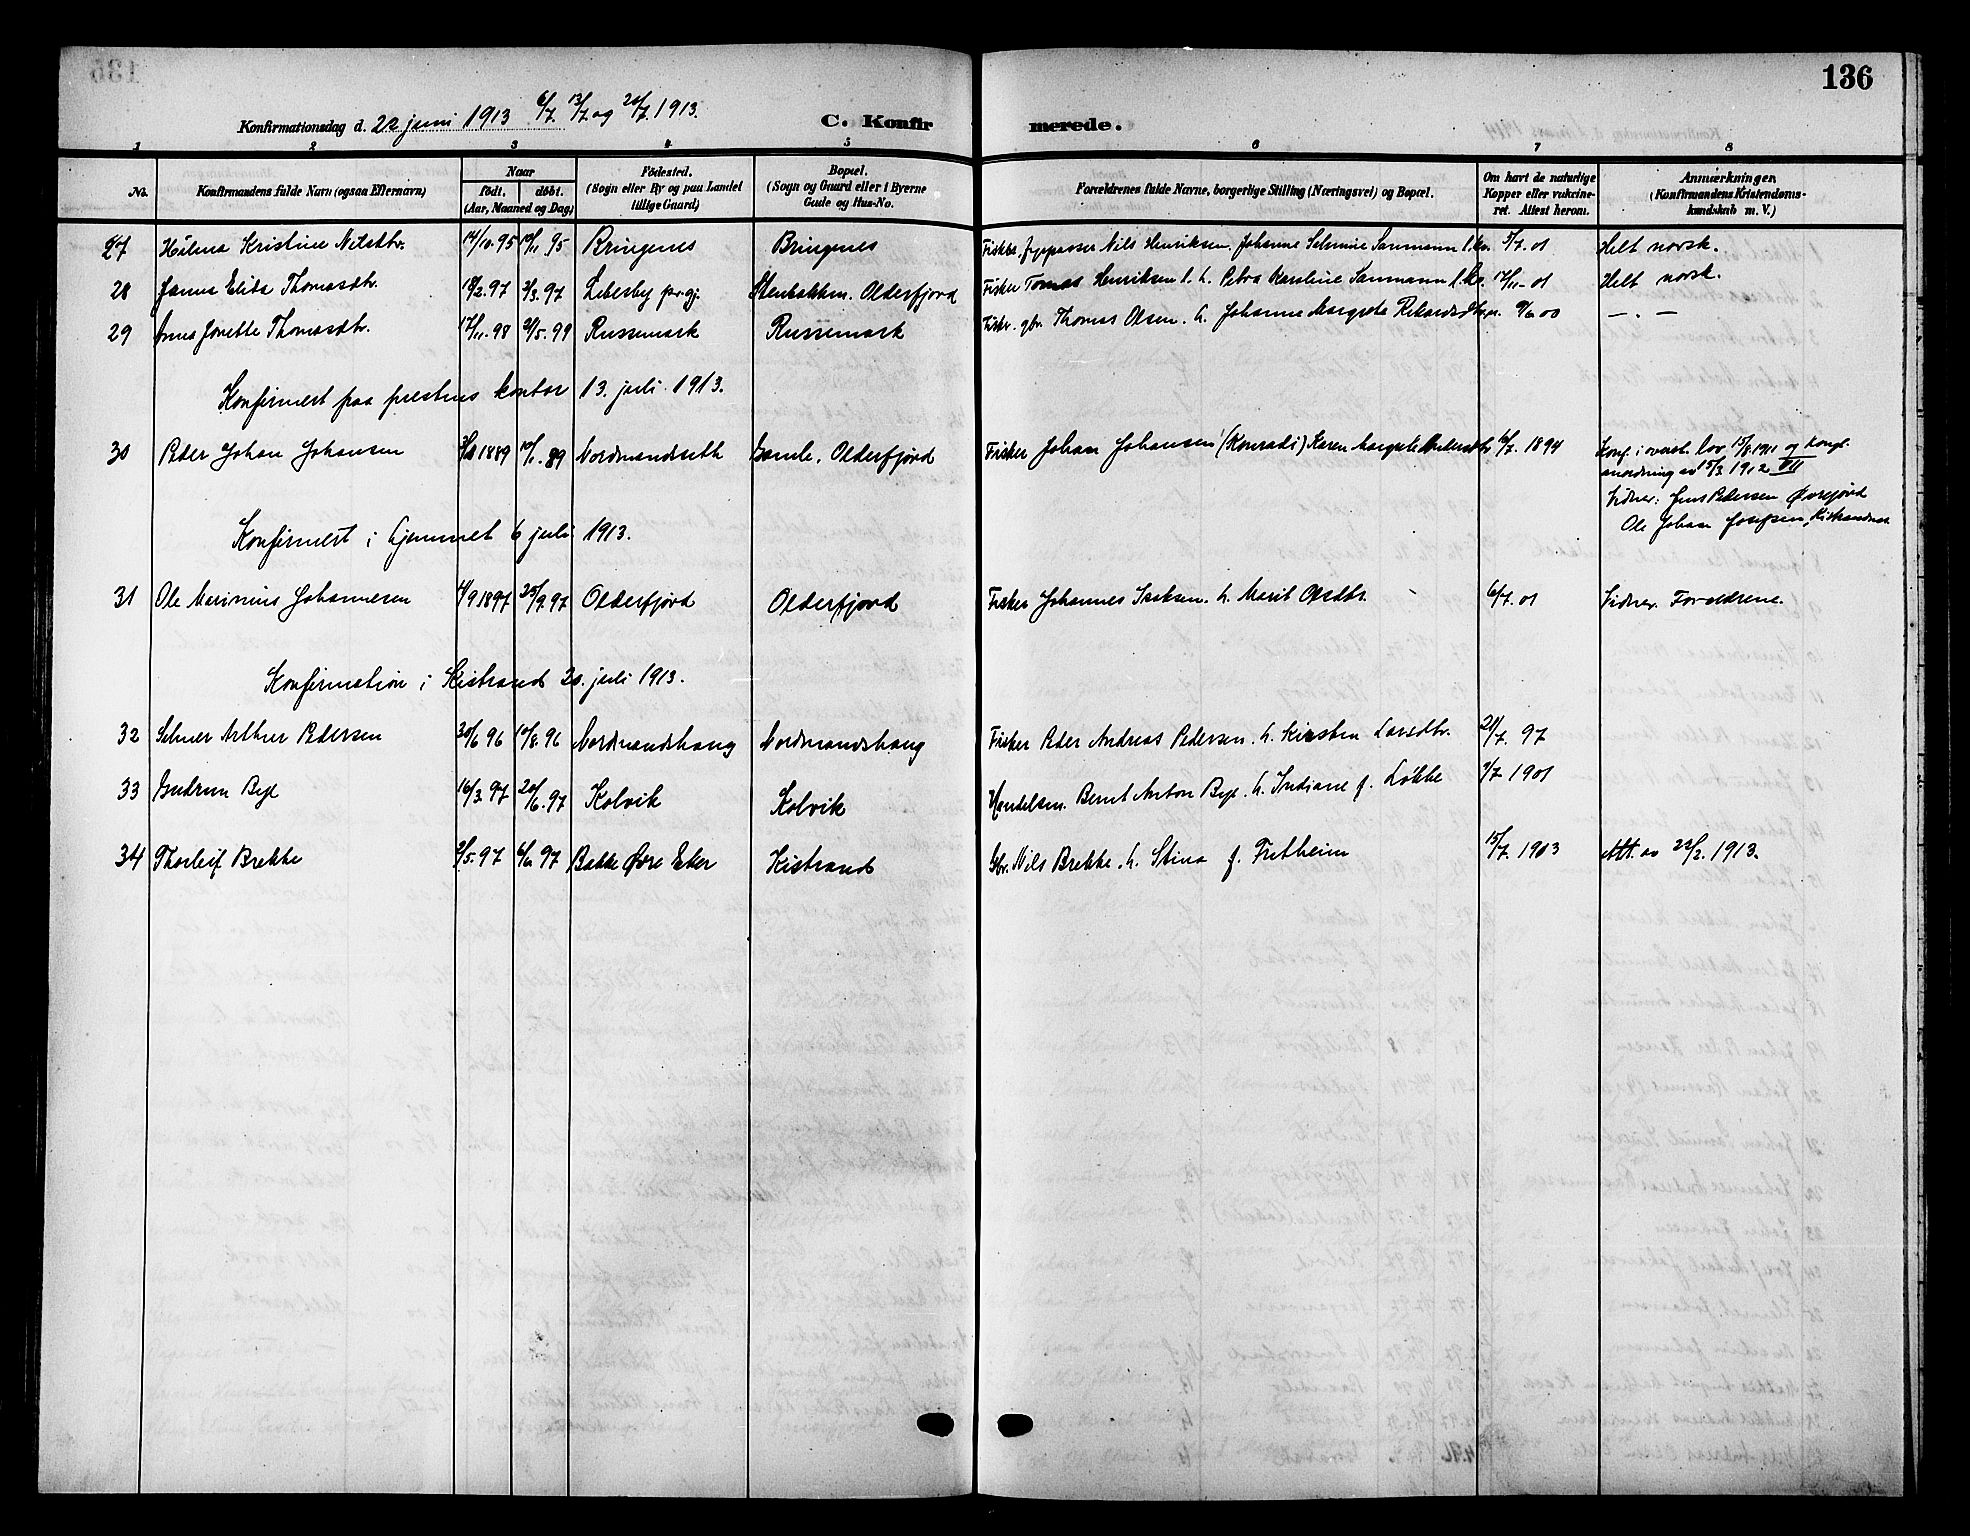 136
Konfirmationsdag d. 22 juni 1913 6/7. 13/7 og 20/7. 1913.
C. Konfirmerede.
1 2 3 4 5 6 7 8
No. Konfirmandens fulde Navn (ogsaa Efternavn) Naar født. døbt. (Aar, Maaned og Dag) Fødested. (Sogn eller By og paa Landet tillige Gaard) Bopæl. (Sogn og Gaard eller i Byerne Gade og Hus-No. Forældrenes fulde Navne, borgerlige Stilling (Næringsvei) og Bopæl. Om havt de naturlige Kopper eller vakcineret. Attest herom. Anmærkninger. (Konfirmandens Kristendomskundskab m. V.)
27 Hålena Kristine Nilsdtr. 14/10. 95 10/11 95 Bringenes Bringenes Nils Henriksen. Johanne Selmine Sanmann 5/7. 01 Helt norsk.
28 Elida Thomasdtr. 18/2. 97 3/3. 97 Lebesby pr.gj. Stenbakken. Olderfjord Fisker Tomas Henriksen l. h. Petra Karoline Sanmann l. kv. 17/11-01 Helt norsk.
29 Anna Jonette Thomasdtr. 17/11. 98 21/5. 99 Russemark Russemark Fisker. gbr. Thomas Olsen. h. Johanne Margreta Rikardsdtr. 9/6 00 — . —
Konfirmert paa prestens kontor 13. juli 1913.
30 Peder Johan Johansen 1889 10/11. 89 Nordmandseth Gamle. Olderfjord Fisker Johan Johansen (Konradi) Karen Margrete Andersdtr 16/7. 1894 Konf. i overst. lov 15/8 1911 og kongl.
anordning av 15/3 1912 VII
Vidner: Jens Pedersen Øvrefjord
Ole Johan Josefsen, Kistrandnes
Konfirmert i hjemmet 6 juli 1913.
31 Ole Marinius Johannesen 4/9 1897 25/9. 97 Olderfjord Olderfjord Fisker Johannes Isaksen. h. Marit Olsdtr. 6/7. 01 Vidner. Forældrene.
Konfirmation i Kistrand 20. juli 1913.
32 Selmer Arthur Pedersen 30/6 96 10/8. 96 Nordmandshaug Nordmandshaug Fisker Peder Andreas Pedersen. h. Kirsten Larsdtr. 21/7. 97
33 Gudrun Bye 16/3. 97 20/6. 97 Kolvik Kolvik Handelsm. Bernt Anton Bye. h. Indiane f. Løkke 1/7 1901
34 Thorleif Brekke 2/5. 97 6/6 97 Bakke Øvre Eker Kistrand Gbr. Nils Brekke. h. Stina f. Fretheim 15/7. 1903 Att. av 22/2. 1913.